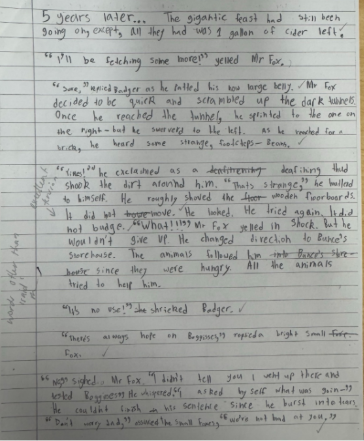 5 years later... The gigantic feast had still been
going on, except, all they had was 1 gallon of cider left.
"I'll be fetching some more!" yelled Mr Fox.
"Sure," replied Badger as he patted his now large belly. Mr Fox
decided to be quick and scrambled up the dark tunnels.
Once he reached the tunnels, he sprinted to the one on
the right - but he swerved to the left. As he reached for a
brick, he heard some strange footsteps -
he exclaimed as a deafening thud
shook the dirt around him. "That's strange," he
to himself. He roughly shoved the wooden floorboards.
It did not move. He He tried again. It did
not budge. "What!!!?" Mr Fox yelled in shock. But he
wouldn't give up. He changed direction to Bunce's
storehouse. The animals followed him into Bunce's store-
house since they were hungry. All the animals
tried to help him.
"It's no use!" she shrieked Badger.
"There's always hope replied a bright small
Fox.
sighed Mr Fox. "I didn't tell you I went up there and
he asked by self what was
He couldn't his sentence since he burst into tears.
"Don't worry Dad," the small foxes. "We're not mad at you,"